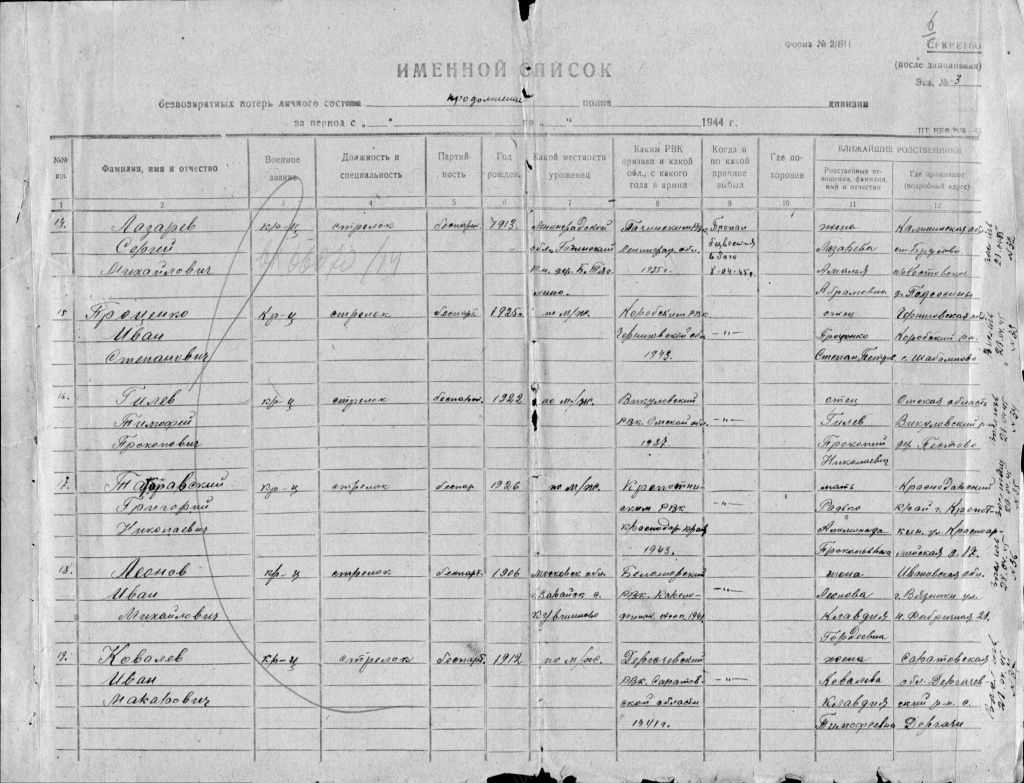 6
Форма № 2/БП
СЕКРЕТНО
(после заполнения)
Экз. № 3
ИМЕННОЙ СПИСОК
безвозвратных потерь личного состава продолжение полка дивизии
за период с „ “ по „ “ 1944 г.
№№ п.п. Фамилия, имя и отчество Военное звание Должность и специальность Партийность Год рожден. Какой местности уроженец Каким РВК призван и какой обл., с какого года в армии Когда и по какой причине выбыл Где похоронен БЛИЖАЙШИЕ РОДСТВЕННИКИ
Родственные отношения, фамилия, имя и отчество Где проживают (подробный адрес)
1 2 3 4 5 6 7 8 9 10 11 12
14. Лазарев кр-ц стрелок беспарт. 1913. Ленинградской Гатчинским РВК Пропал жена Калининская обл.
Сергей обл. Ленинград. обл. Лазарева ст. Брусово
Михайлович дер. Б. 1935г. в бою 8.04.45г. Амалья
Абрамовна д.
15 Проценко кр-ц стрелок беспарт. 1925г. по м/ж. Коробским РВК отец Черниговская обл.
Иван Черниговской обл. –"– Проценко Коробский рн.
Степанович 1943. Степан Петров. с. Шабалиново
16. Гилев кр-ц стрелок беспарт. 1922 по м/ж. Викуловский отец Омская область
Тимофей РВК. Омской обл. –"– Гилев Викуловский р
Прокопович 1937 Прокопий дер.
Николаевич
17. кр-ц стрелок беспар 1926 по м/ж. мать Краснодарский
Григорий ским РВК –"– край г. Кропот-
Николаевич краснодар. края кин. ул. Красноар-
1943г. Прокопьевна мейская д. 17.
18. Леонов кр-ц стрелок беспарт. 1906 Московск. обл. Беломорский жена Ивановская обл.
Иван г. Зарайск с. РВК. Карело- –"– Леонова г. Вязники ул.
Михайлович 1941 Клавдия н. Фабричная 21.
Гордеевна
19. Ковалев кр-ц стрелок беспарт. 1912 по м/ж. Дергачевский жена Саратовская
Иван РВК. Саратов- –"– Ковалева обл. Дергачев-
Макарович ской области Клавдия ский р-н. с.
1941г. Тимофеевна Дергачи